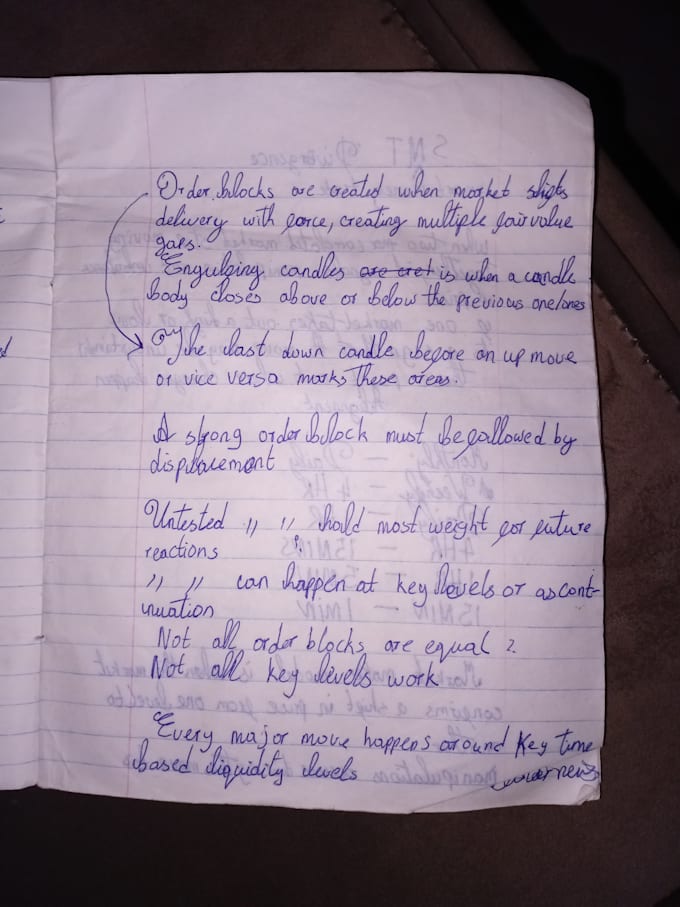 Order blocks are created when market shifts
delivery with force, creating multiple fair value
gaps.
Engulfing candles are cret is when a candle
body closes above or below the previous one/ones
The last down candle before an up move
or vice versa marks these areas.
A strong order block must be followed by
displacement
Untested " " hold most weight for future
reactions
" " can happen at key levels or as cont-
inuation
Not all order blocks are equal
Not all key levels work
Every major move happens around key time
based liquidity levels